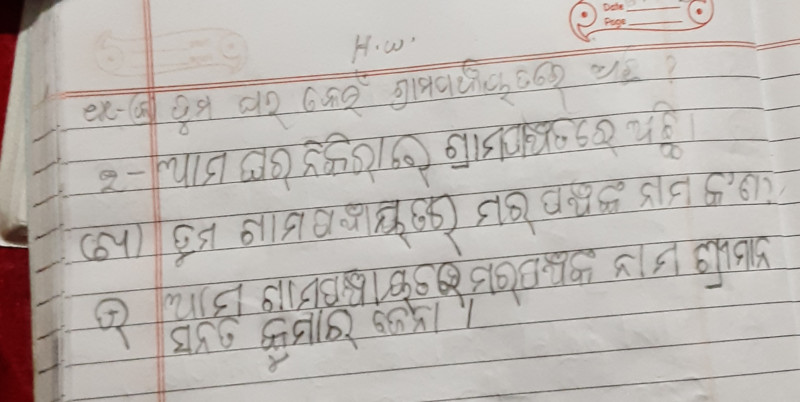 Date
Page
H.W.
ex-(କ) ତୁମ ଘର କେଉଁ ଗ୍ରାମପଞ୍ଚାୟତରେ ଅଛି ?
ଉ- ଆମ ଘର ଗ୍ରାମପଞ୍ଚାତରେ ଅଛି।
(ଖ) ତୁମ ଗ୍ରାମପଞ୍ଚାୟତରେ ସରପଞ୍ଚଙ୍କ ନାମ କ'ଣ?
ଉ ଆମ ଗ୍ରାମପଞ୍ଚାୟତରେ ସରପଞ୍ଚଙ୍କ ନାମ ଶ୍ରୀମାନ
କୁମାର ଜେନା।